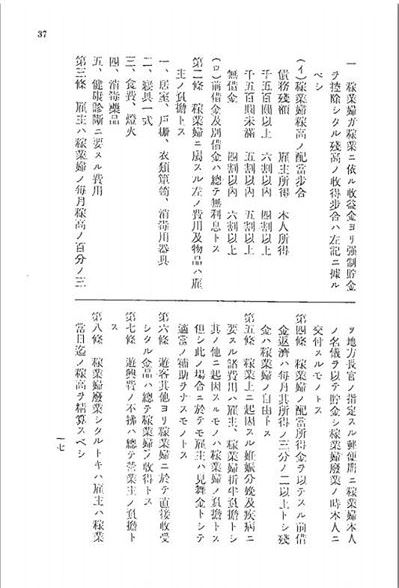 37
一 稼業婦ガ稼業ニ依ル收益金ヨリ强制貯金
ヲ控除シタル殘高ノ收得步合ハ左記ニ據ル
ベシ
(イ)稼業婦稼高ノ配當步合
債務殘額 雇主所得 本人所得
千五百圓以上 六割以內 四割以上
千五百圓未滿 五割以內 五割以上
無借金 四割以內 六割以上
(ロ)前借金及別借金ハ總テ無利息トス
第二條 稼業婦ニ屬スル左ノ費用及物品ハ雇
主ノ負擔トス
一、居室、戶棚、衣類簞笥、消毒用器具
二、寢具一式
三、食費、燈火
四、消毒藥品
五、健康診斷ニ要スル費用
第三條 雇主ハ稼業婦ノ每月稼高ノ百分ノ三
ヲ地方長官ノ指定スル郵便局ニ稼業婦本人
ノ名儀ヲ以テ貯金シ稼業婦廢業ノ時本人ニ
交付スルモノトス
第四條 稼業婦ノ配當所得金ヲ以テスル前借
金返濟ハ每月其所得ノ三分ノ二以上トシ殘
金ハ稼業婦ノ自由トス
第五條 稼業上ニ起因スル姙娠分娩及疾病ニ
要スル諸費用ハ雇主、稼業婦折半負擔トシ
其ノ他ニ起因スルモノハ稼業婦ノ負擔トス
但シ此ノ場合ニ於テモ雇主ハ見舞金トシテ
適當ノ補助ヲナスモノトス
第六條 遊客其他ヨリ稼業婦ニ於テ直接收受
シタル金品ハ總テ稼業婦ノ收得トス
第七條 遊興費ノ不拂ハ總テ營業主ノ負擔ト
ス
第八條 稼業婦廢業シタルトキハ雇主ハ稼業
當日迄ノ稼高ヲ精算スベシ
一七